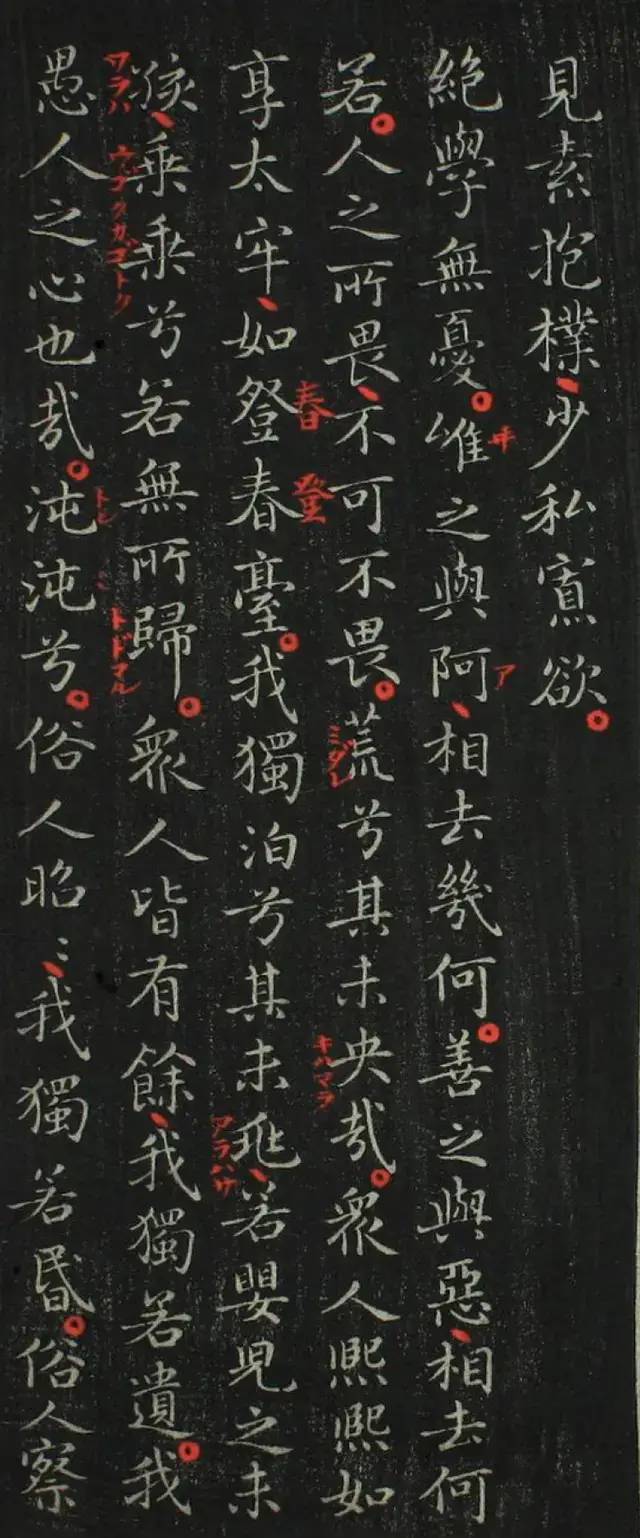 見素抱樸、少私寡欲。
絕學無憂。唯之與阿、相去幾何。善之與惡、相去何
若。人之所畏、不可不畏。荒兮其未央哉。眾人熙熙如
享太牢、如登春臺。我獨泊兮其未兆、若嬰兒之未
孩、乗乗兮若無所歸。眾人皆有餘、我獨若遺。我
愚人之心也哉。沌沌兮。俗人昭〻、我獨若昏。俗人察
ヰ
ア
春
登
ミダレ
キハマラ
アラハサ
ワラハ
ウゴクガゴトク
トドマル
トン